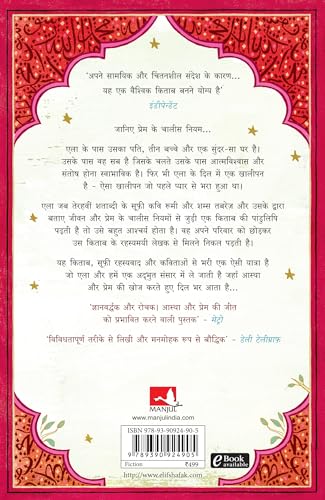 'अपने सामयिक और चिंतनशील संदेश के कारण...
यह एक वैश्विक किताब बनने योग्य है'
इंडीपेन्डेंट
जानिए प्रेम के चालीस नियम...
एला के पास उसका पति, तीन बच्चे और एक सुंदर-सा घर है।
उसके पास वह सब है जिसके चलते उसके पास आत्मविश्वास और
संतोष होना स्वाभाविक है। फिर भी एला के दिल में एक खालीपन
है - ऐसा खालीपन जो पहले प्यार से भरा हुआ था।
एला जब तेरहवीं शताब्दी के सूफ़ी कवि रूमी और शम्स तबरेज़ और उसके द्वारा
बताए जीवन और प्रेम के चालीस नियमों से जुड़ी एक किताब की पांडुलिपि
पढ़ती है तो उसे बहुत आश्चर्य होता है। वह अपने परिवार को छोड़कर
उस किताब के रहस्यमयी लेखक से मिलने निकल पड़ती है।
यह किताब, सूफ़ी रहस्यवाद और कविताओं से भरी एक ऐसी यात्रा है
जो एला और हमें एक अद्भुत संसार में ले जाती है जहां आस्था
और प्रेम की खोज करते हुए दिल भर आता है...
'ज्ञानवर्द्धक और रोचक। आस्था और प्रेम की जीत
को प्रभावित करने वाली पुस्तक' - मेट्रो
'विविधतापूर्ण तरीके से लिखी और मनमोहक रूप से बौद्धिक' - डेली टेलीग्राफ़
MANJUL
www.manjulindia.com
ISBN 978-93-90924-90-5
9789390924905
Fiction ₹499
www.elifshafak.com
eBook
available